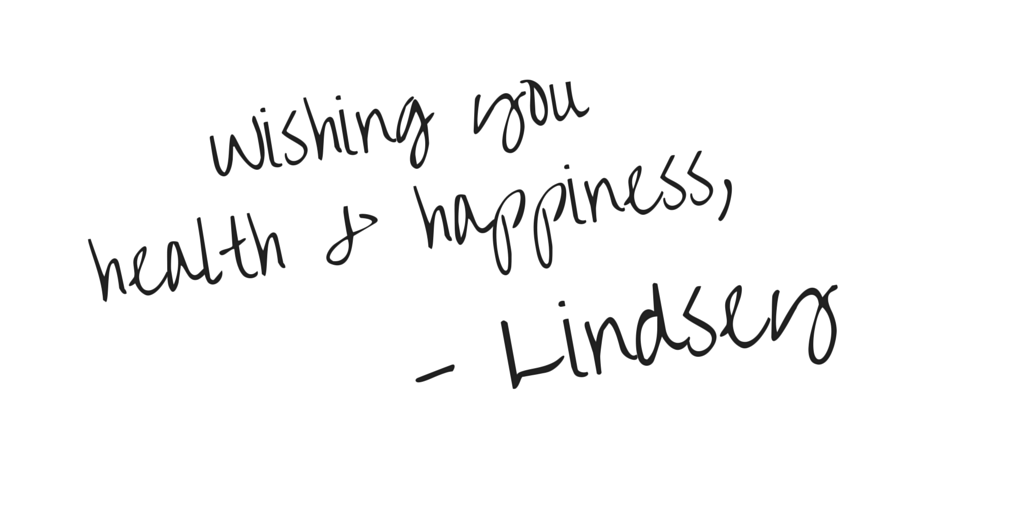 wishing you
health & happiness,
- Lindsey